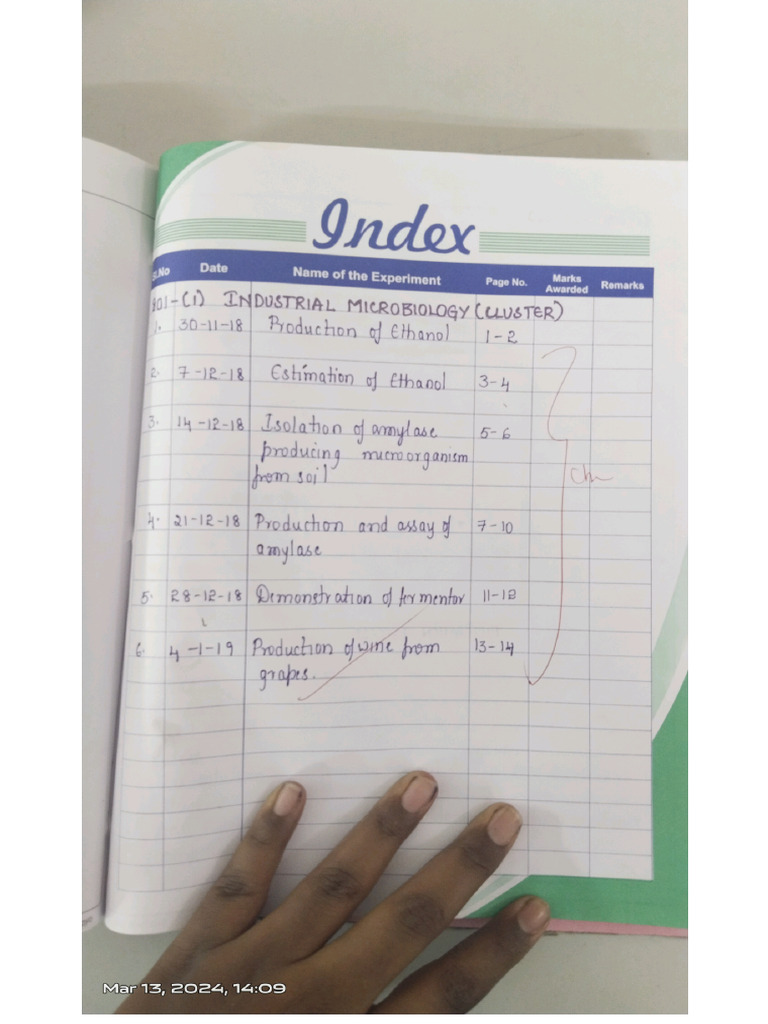 Index
.No Date Name of the Experiment Page No. Marks Awarded Remarks
801-(1) INDUSTRIAL MICROBIOLOGY (CLUSTER)
1. 30-11-18 Production of Ethanol 1-2
2. 7-12-18 Estimation of Ethanol 3-4
3. 14-12-18 Isolation of amylase 5-6
producing microorganism
from soil
4. 21-12-18 Production and assay of 7-10
amylase
5. 28-12-18 Demonstration of fermentor 11-12
6. 4-1-19 Production of wine from 13-14
grapes.
Mar 13, 2024, 14:09